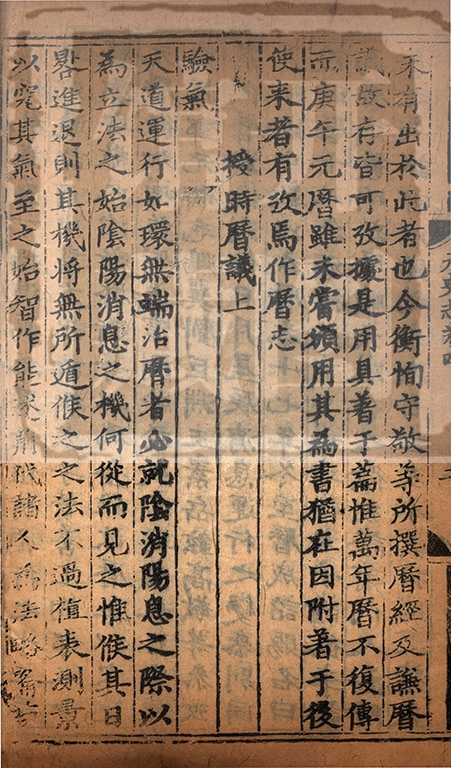 未有出於此者也今衡恂守敬等所撰曆經及謙曆
議故存皆可攷據是用具著于篇惟萬年曆不復傳
而庚午元曆雖未嘗頒用其為書猶在因附著于後
使来者有攷焉作曆志
授時曆議上
驗氣
天道運行如環無端治曆者必就陰消陽息之際以
為立法之始陰陽消息之機何從而見之惟候其日
晷進退則其機将無所遁候之之法不過植表測景
以究其氣至之始智作能述前代諸人為法略備